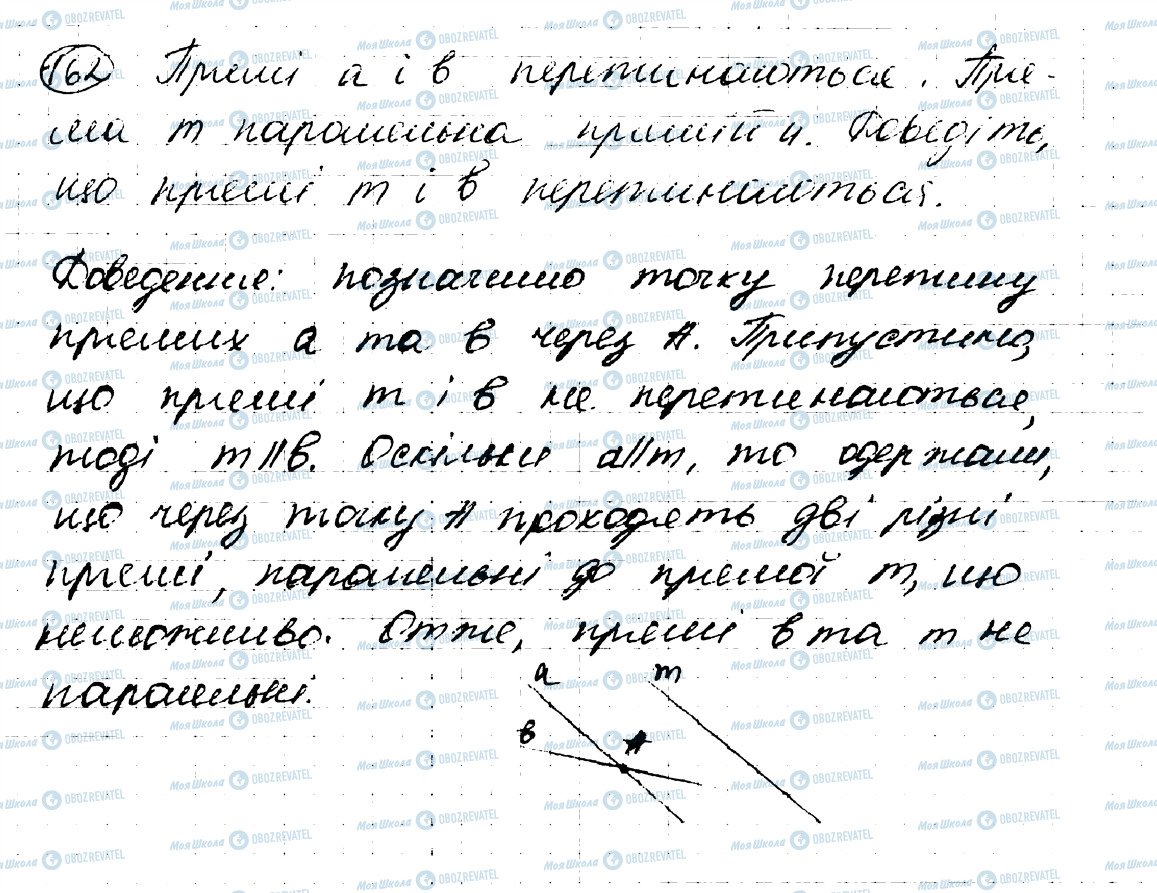 162 Прямі a і b перетинаються. Пря-
ма m паралельна прямій a. Доведіть,
що прямі m і b перетинаються.
Доведення: позначимо точку перетину
прямих a та b через A. Припустимо,
що прямі m і b не перетинаються,
тоді m||b. Оскільки a||m, то одержали,
що через точку A проходять дві різні
прямі, паралельні до прямої m, що
неможливо. Отже, прямі b та m не
паралельні.
a m
b A